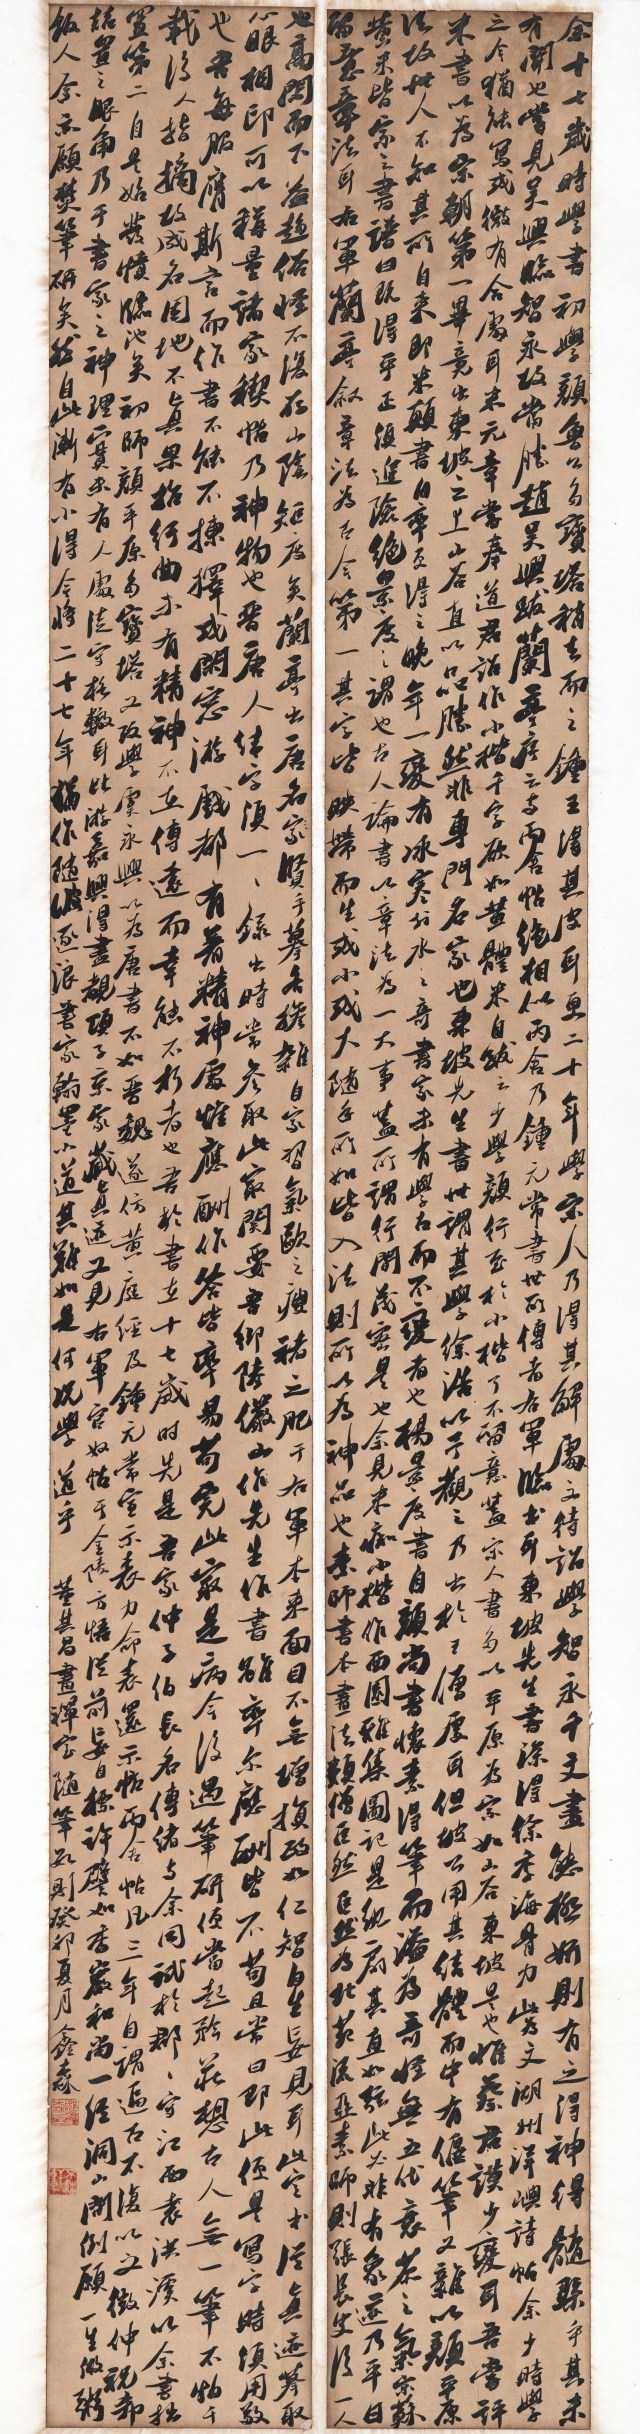 余十七歲時學書初學顏魯公多寶塔稍去而之鍾王得其皮耳更二十年學宋人乃得其解處文待詔學智永千文盡態極妍則有之得神得髓槩乎其未
有聞也嘗見吳興臨智永故當勝趙吳興跋蘭亭序云與丙舍帖絶相似丙舍乃鍾元常書世所傳者右軍臨書耳東坡先生書深得徐季海骨力此為文湖州洋嶼詩帖余少時學
之今猶能寫或微有合處耳米元章嘗奉道君詔作小楷千字欲如黄體米自跋云少學顏行至於小楷了不留意蓋宋人書多以平原為宗如山谷東坡是也惟蔡君謨少變耳吾嘗評
米書以為宋朝第一畢竟出東坡之上山谷直以品勝然非專門名家也東坡先生書世謂其學徐浩以予觀之乃出於王僧虔耳但坡公用其結體而中有偃筆又雜以顏平原
法故世人不知其所自來即米顛書自率更得之晚年一變有冰寒於水之奇書家未有學古而不變者也楊景度書自顏尚書懷素得筆而溢為奇怪無五代衰苶之氣宋蘇
黄米皆宗之書譜曰既得平正須追險絶景度之謂也古人論書以章法為一大事蓋所謂行間茂密是也余見米癡小楷作西園雅集圖記是紈扇其直如弦此必非有象迹乃平日
留意章法耳右軍蘭亭敘章法為古今第一其字皆映帶而生或小或大隨手所如皆入法則所以為神品也素師書本畫法類僧巨然巨然為北苑流亞素師則張長史後一人
也高閑而下益趨俗怪不復存山陰矩度矣蘭亭出唐名家賢手摹各摻雜自家習氣歐之瘦褚之肥于右軍本來面目不無增損政如仁智自生妄見耳此定本從真迹摹取
心眼相印可以稱量諸家禊帖乃神物也晉唐人結字須一一錄出時常參取此最關要吾鄉陸儼山作先生作書雖率爾應酬皆不苟且常曰即此便是寫字時須用敬
也吾每服膺斯言而作書不能不揀擇或閑窓游戲都有着精神處惟應酬作答皆率易苟完此最是病今後遇筆研便當起矜莊想古人無一筆不怕千
載後人指摘故成名因地不真果招紆曲未有精神不在傳遠而幸能不朽者也吾於書在十七歲時先是吾家仲子伯長名傳緒與余同試於郡郡守江西袁洪溪以余書拙
置第二自是始發憤臨池矣初師顏平原多寶塔又改學虞永興以為唐書不如晉魏遂仿黄庭經及鍾元常宣示表力命表還示帖丙舍帖凡三年自謂逼古不復以文徵仲祝希
哲置之眼角乃于書家之神理實未有入處徒守格轍耳比游嘉興得盡覩項子京家藏真迹又見右軍官奴帖于金陵方悟從前妄自標許譬如香嚴和尚一經洞山問倒願一生做粥
飯人余亦願焚筆研矣然自此漸有小得今將二十七年猶作隨波逐浪書家翰墨小道其難如是何況學道乎 董其昌畫禪室隨筆數則癸卯夏月鑫森